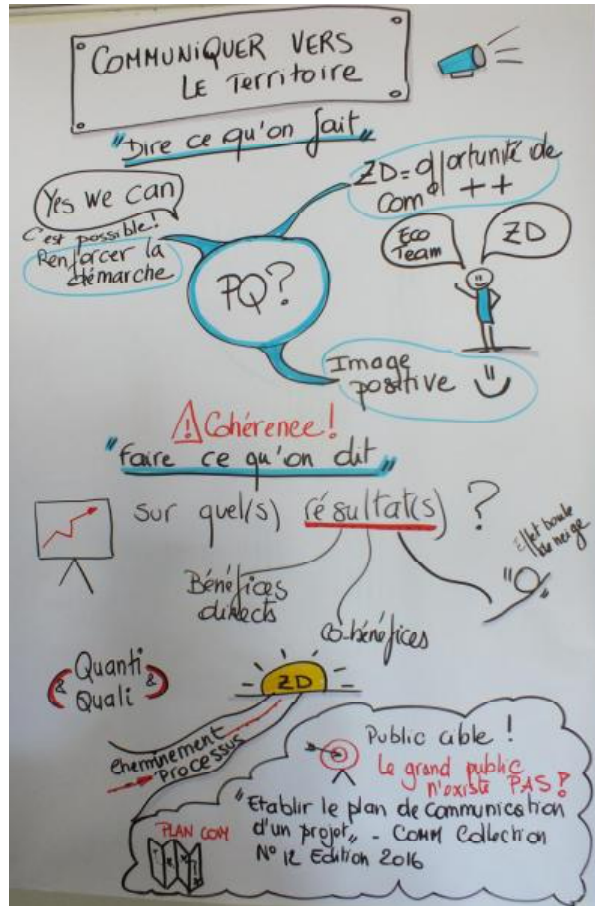 COMMUNiQUER VERS
LE Territoire
"Dire ce qu'on fait"
Yes we can
C'est possible!
Renforcer la
démarche
ZD = opportunité de
com ++
Eco
Team
ZD
PQ?
Image
positive
Cohérence!
"faire ce qu'on dit"
sur quel(s) résultat(s) ?
Effet boule
de neige
Bénéfices
directs
co-bénéfices
Quanti
& &
Quali
ZD
Cheminement
Processus
Public cible !
Le grand public
n'existe PAS!
"Etablir le plan de communication
d'un projet" - COMM Collection
N° 12 Edition 2016
PLAN COM